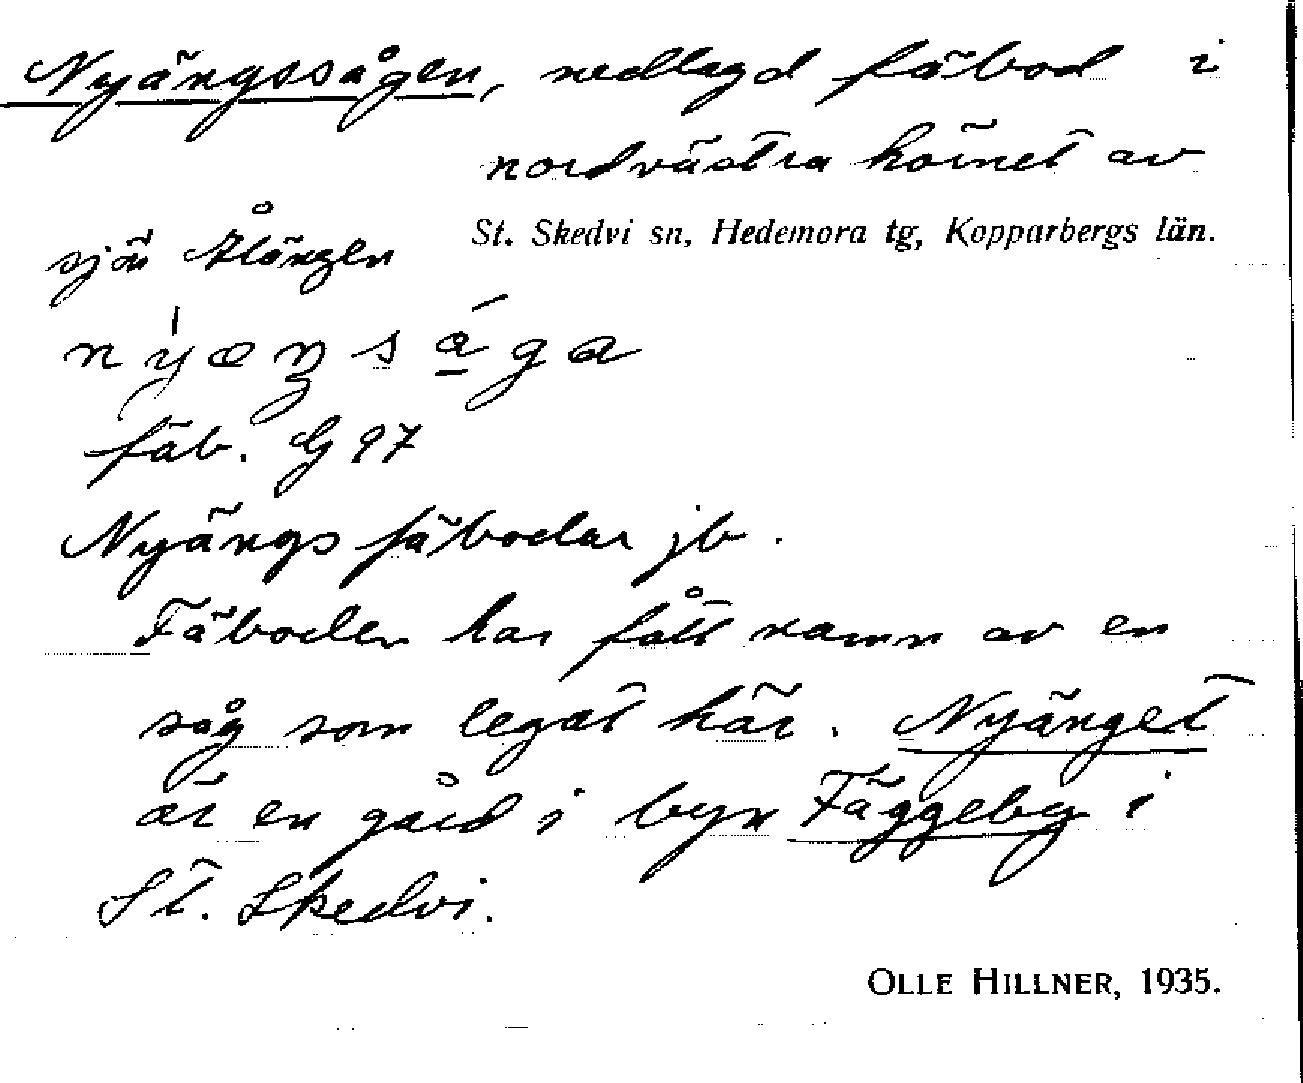 Nyängssågen, nedlagd fäbod i
nordvästra hörnet av
St. Skedvi sn, Hedemora tg, Kopparbergs län.
sjön
fäb. G 97
Nyängs fäbodar jb.
Fäboden har fått namn av en
såg som legat här. Nyänget
är en gård i byn Fäggeby i
St. Skedvi.
OLLE HILLNER, 1935.